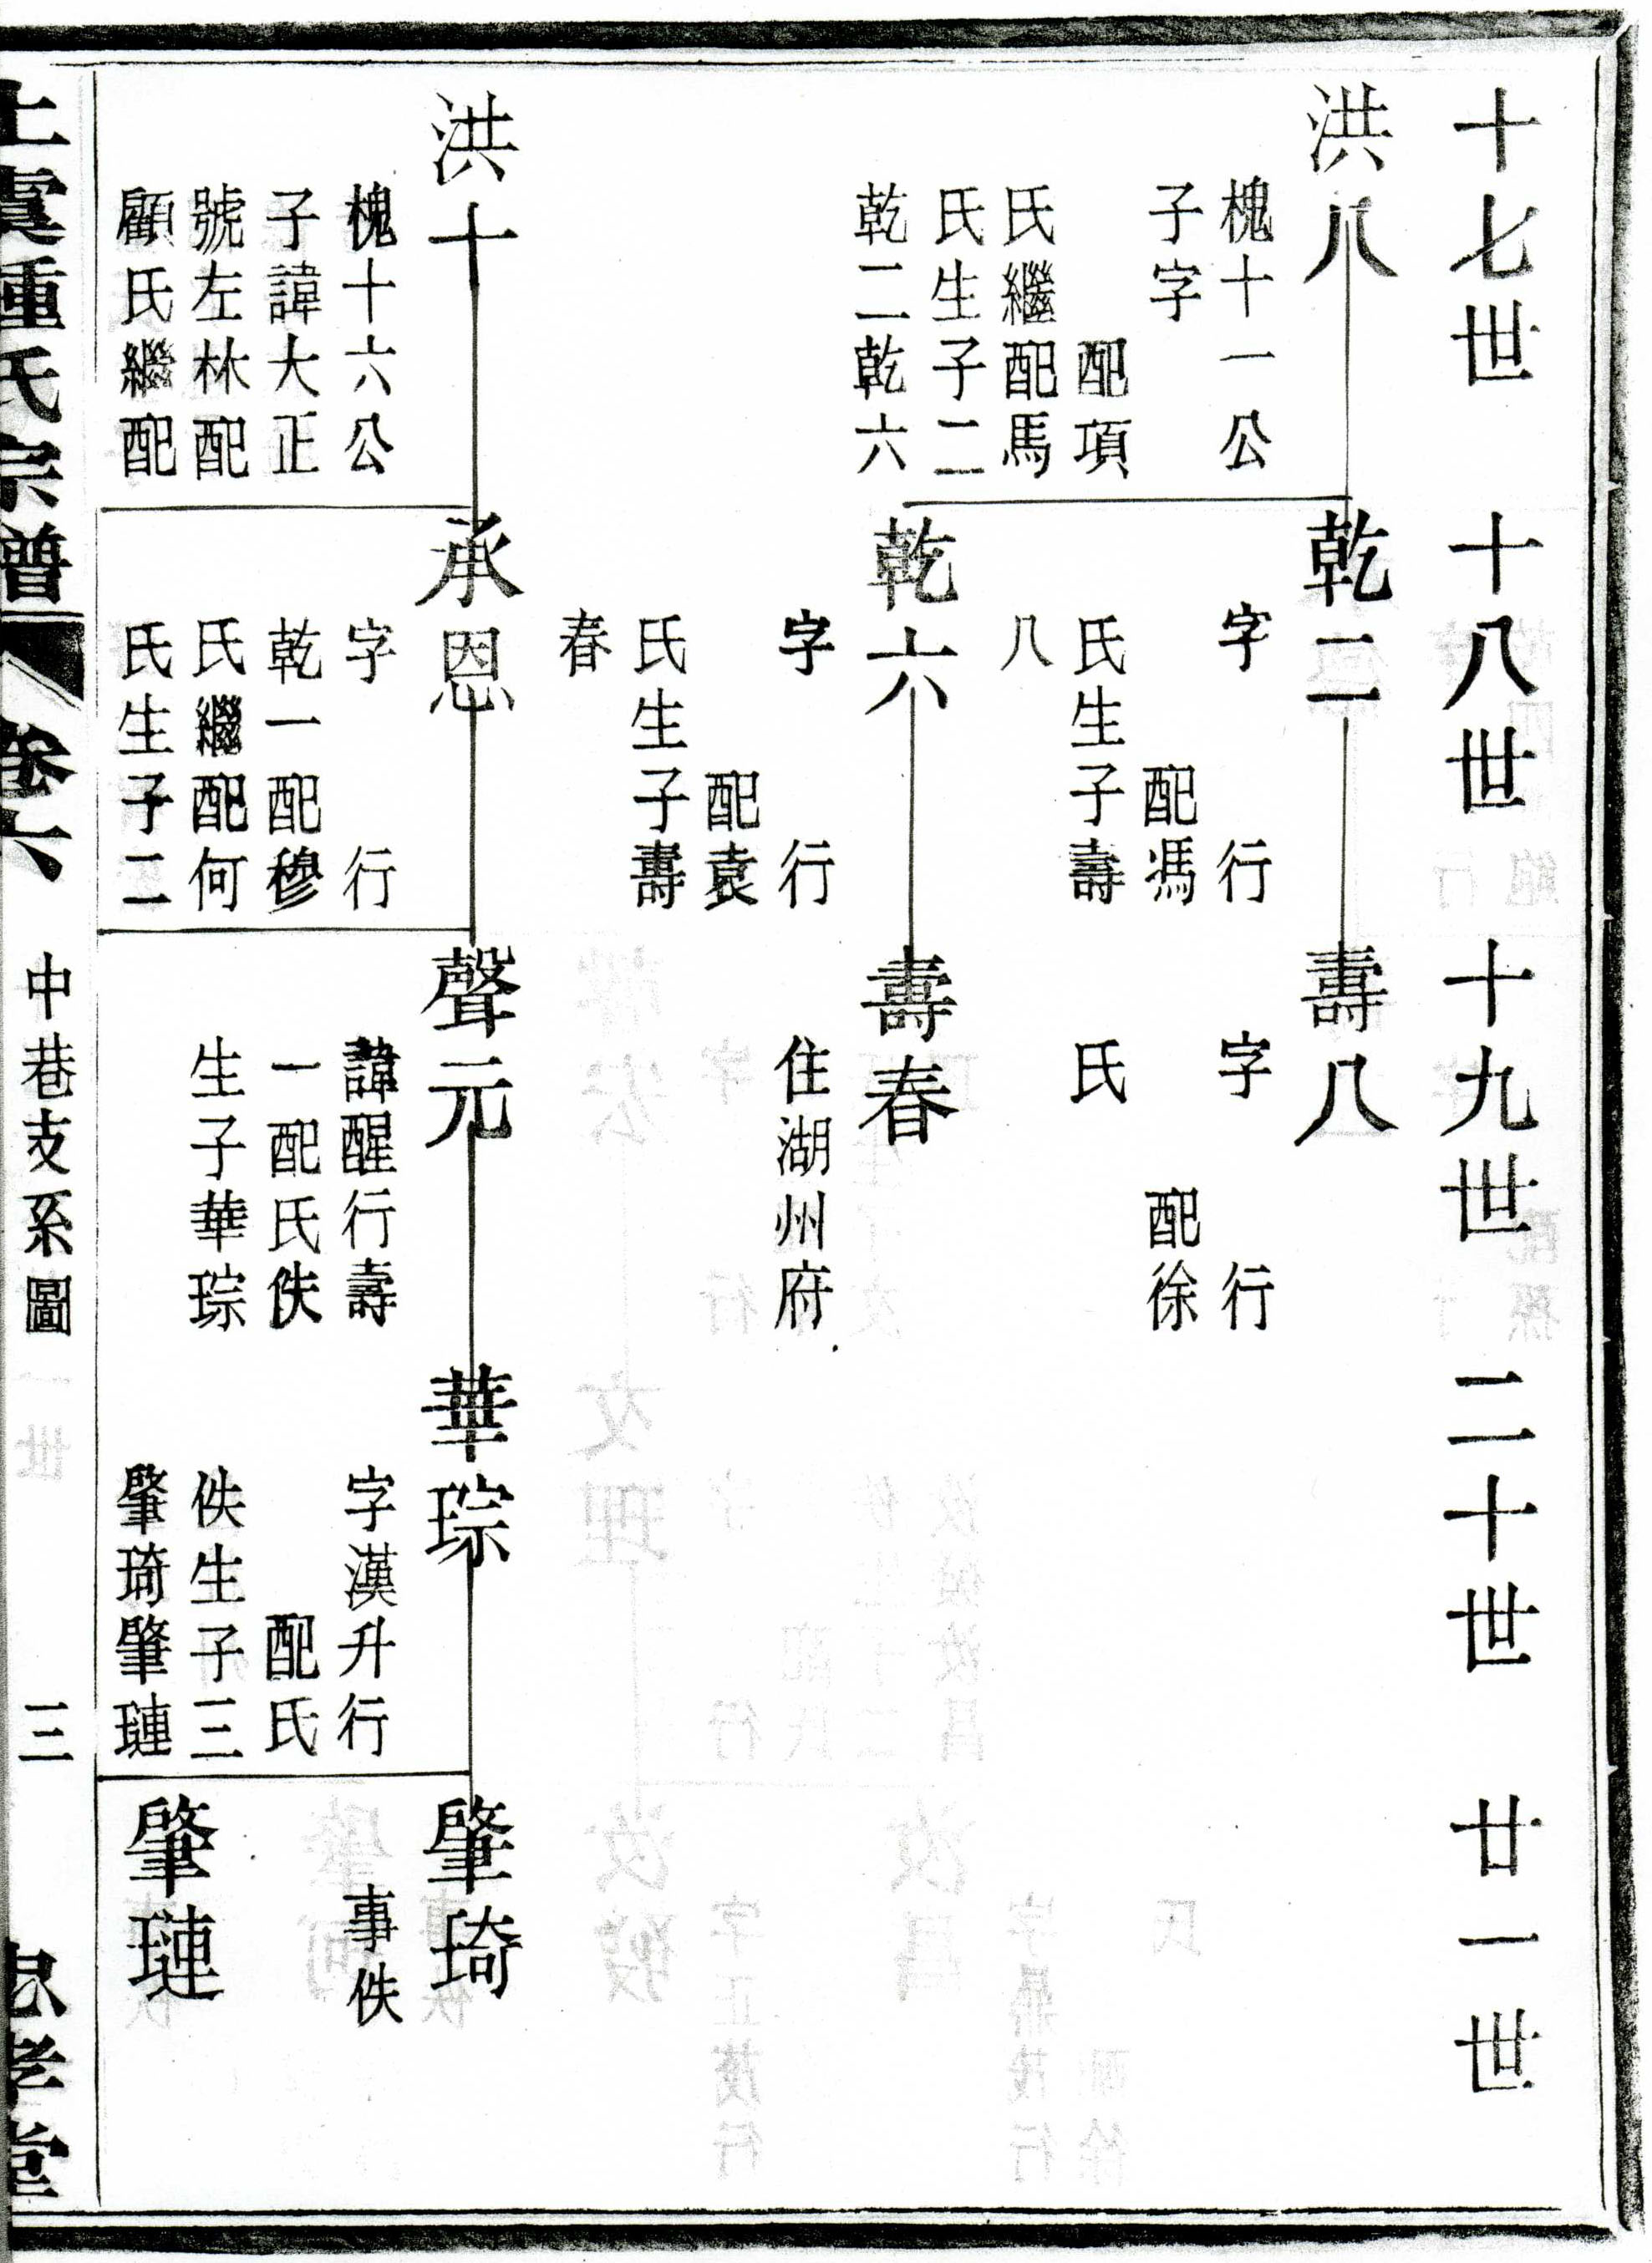 十七世
十八世
十九世
二十世
廿一世
洪八
槐十一公
子字
配項
氏繼配馬
氏生子二
乾二乾六
乾二
字 行
配馮
氏生子壽
八
壽八
字 行
配徐
氏
乾六
字 行
配袁
氏生子壽
春
壽春
住湖州府
洪十
槐十六公
子諱大正
號左林配
顧氏繼配
承恩
字 行
乾一配穆
氏繼配何
氏生子二
聲元
諱醒行壽
一配氏佚
生子華琮
華琮
字漢升行
配氏
佚生子三
肇琦肇璉
肇琦
事佚
肇璉
上虞種氏宗譜
卷六
中巷支系圖
三
忠孝堂